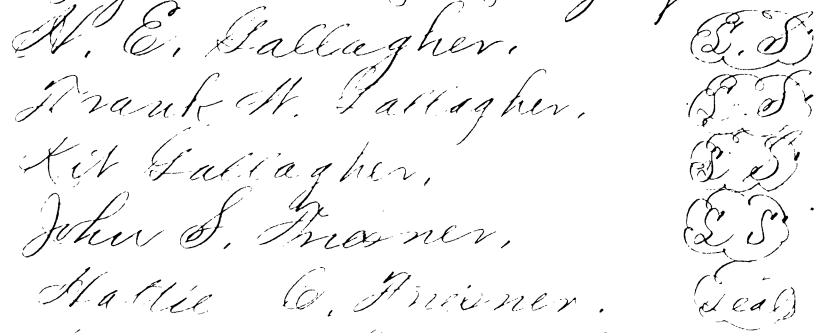 N. E. Gallagher. L. S
Frank W. Gallagher. L. S.
Kit Gallagher. L S.
John S. Friesner. L S
Hattie C. Friesner. Seal